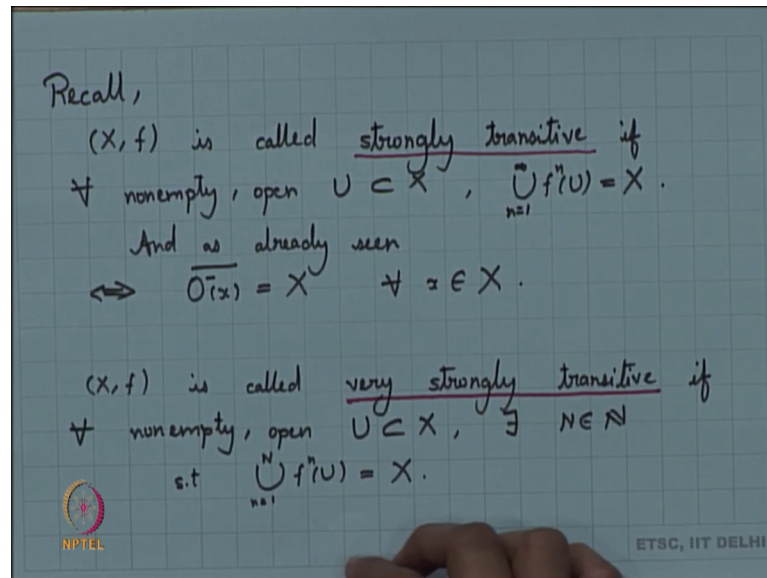 Recall,
(X, f) is called strongly transitive if
∀ nonempty, open U ⊂ X , ∞⋃n=1 fⁿ(U) = X .
And as already seen
⇔ \overline{O⁻(x)} = X ∀ x ∈ X .
(X, f) is called very strongly transitive if
∀ nonempty, open U ⊂ X, ∃ N ∈ ℕ
s.t N⋃n=1 fⁿ(U) = X .
NPTEL
ETSC, IIT DELHI